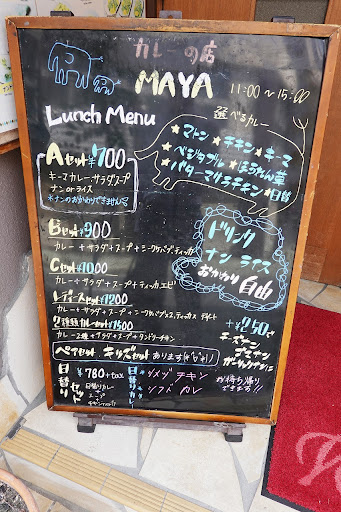 カレーの店
MAYA
11:00~15:00
Lunch Menu
選べるカレー
★マトン ★チキン ★キーマ
★ベジタブル ★ほうれん草
★バターマサラチキン ★日替
Aセット¥700
キーマカレー・サラダ・スープ
ナンorライス
*ナンのおかわりできません
Bセット¥900
カレー+サラダ+スープ+シークケバブ+ティッカ
ドリンク
ナン ライス
おかわり
自由
Cセット¥1000
カレー+サラダ+スープ+ティッカ エビ
レディースセット¥1200
2種類カレーセット¥1500
カレー2種+サラダ+スープ+タンドリーチキン
+¥250
チーズナン
ゴマナン
ガーリックナンに
ペアセット、キッズセットあります
日替りセット
¥780+tax
日替りカレー
スープ
日替りカレー
チキン
お持ち帰り
できます!!